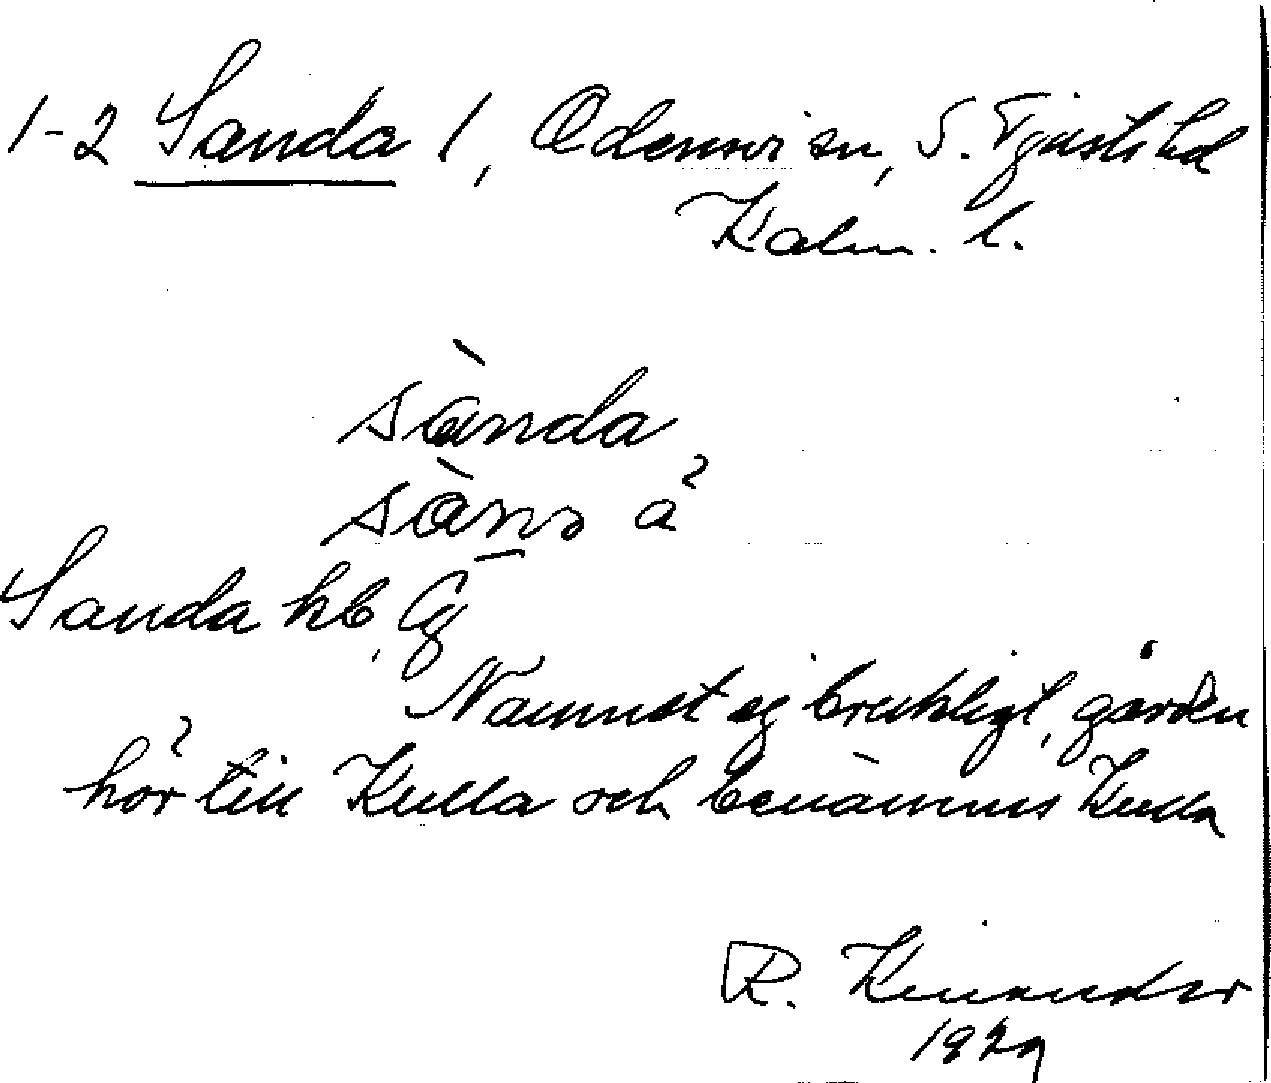 1-2 Sanda 1, Odensvi sn, S. Tjusts hd
Kalm. l.
sànda
sàna
Sanda kb, Gg
Namnet ej brukligt, gården
hör till Kulla och benämnes Kulla
R. Kinander
1929